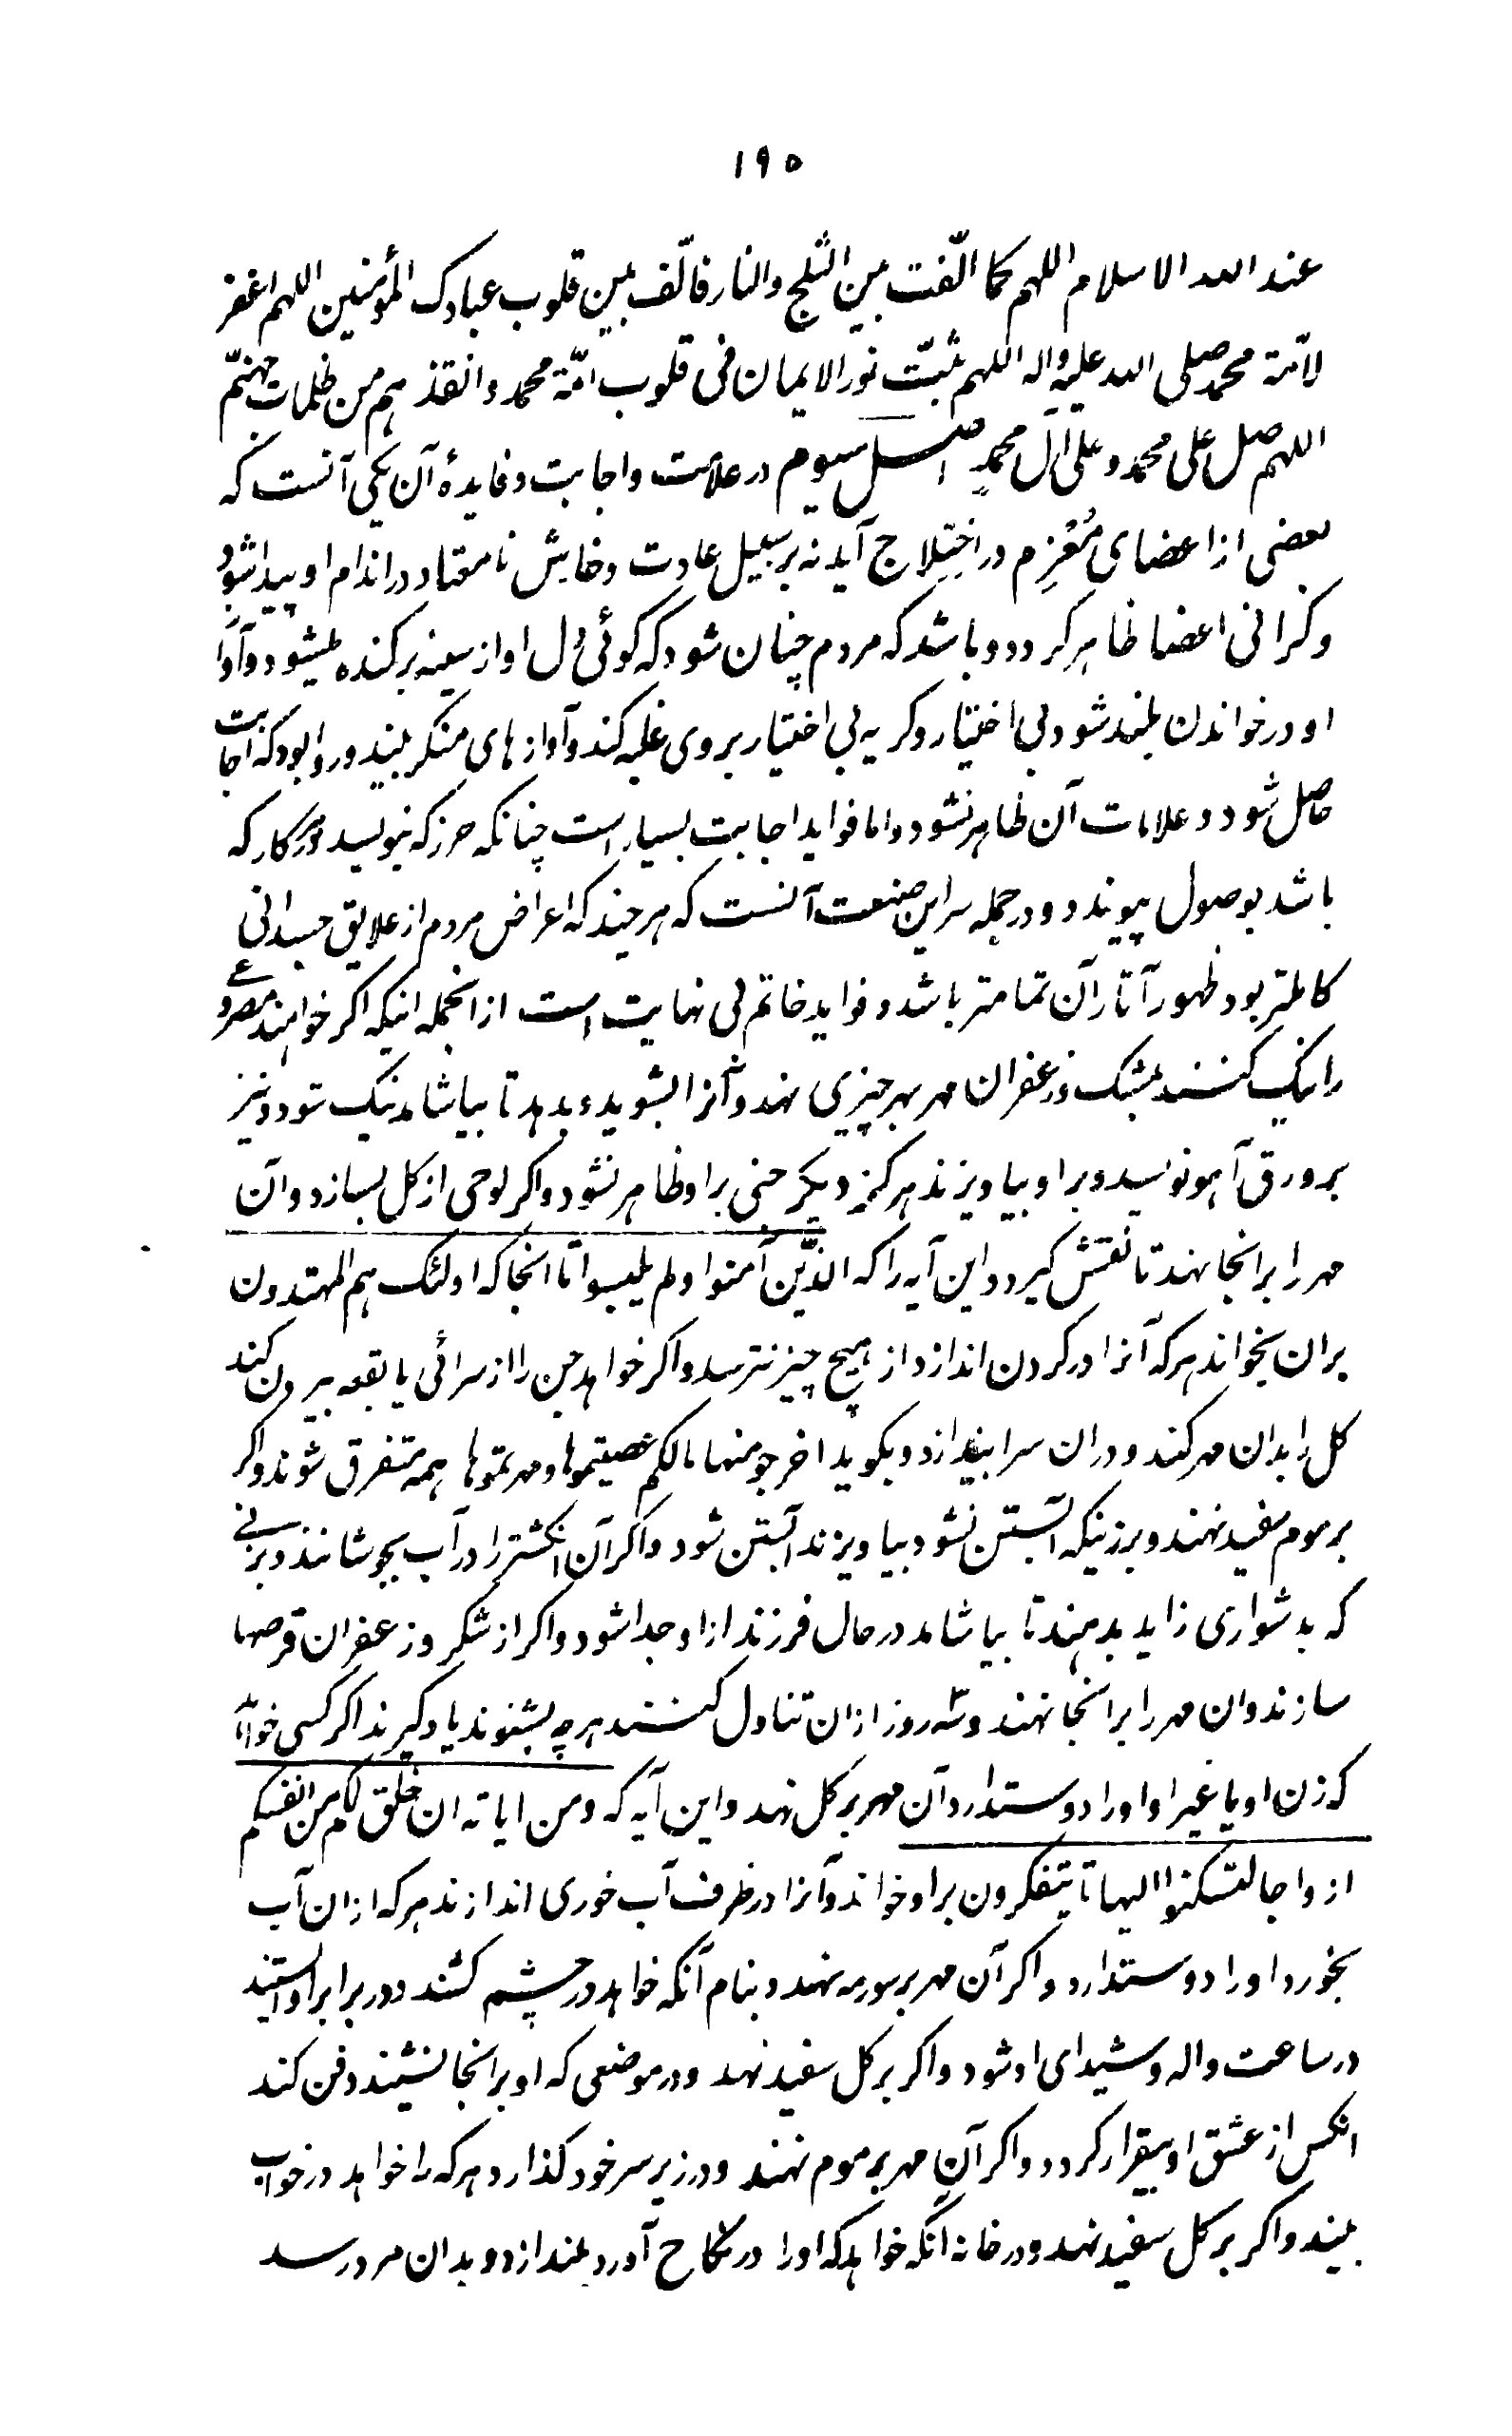 ۱۹۵
عند الله الاسلام اللهم كما الّفت بين الثلج والنار فالّف بين قلوب عبادك المؤمنين اللهم اغفر
لامّة محمد صلى الله عليه واله اللهم ثبّت نور الايمان فى قلوب امّة محمد وانقذهم من ظلمات جهنّم
اللهم صل على محمد وعلى آل محمدٍ اصل سيوم در علامت واجابت وفايدهٔ آن يكى آنست كه
بعضى از اعضاى مُعَزِم در اختلاج آيد نه بر سبيل عادت وخارش نامعتاد در اندام او پيدا شود
وكرانى اعضا ظاهر كردد وباشد كه مردم چنان شود كه كوئى دل او از سينه بركنده ميشود وآواز
او در خواندن بلند شود بى اختيار وكريه بى اختيار بروى غلبه كند وآوازهاى منكر بيند وروا بود كه اجابت
حاصل شود وعلامات آن ظاهر نشود واما فوايد اجابت بسيار است چنانكه حرز كه بنويسد وهر كار كه
باشد بوصول پيوندد ودر جمله سر اين صنعت آنست كه هر چند كه اعراض مردم از علايق جسدانى
كاملتر بود ظهور آثار آن تمامتر باشد وفوايد خاتم بى نهايت است از انجمله اينكه اكر خواهند مصروعى
را نيك كنند بمشك وزعفران مهر بهر چيزى نهد وآنرا بشويد وبدهد تا بياشامد نيك شود ونيز
بر ورق آهو نويسد وبر او بياويزند هركز ديكر جنى بر او ظاهر نشود واكر لوحى از كل بسازد وآن
مهر را بر انجا نهد تا نقش كيرد واين آيه را كه الذين آمنوا ولم يلبسوا تا انجا كه اولئك هم المهتدون
بران بخواند هركه آنرا در كردن اندازد از هيچ چيز نترسد واكر خواهد جن را از سرائى يا بقعه بيرون كند
كل را بدان مهر كند ودران سرا بيندازد وبكويد اخرجو منها مالكم عصيتموها ومهرتموها همه متفرق شوند واكر
بر موم سفيد نهند وبر زنيكه آبستن نشود بياويزند آبستن شود واكر آن انكشتر را در آب بجوشانند وبزنى
كه بدشوارى زايد بدهند تا بياشامد در حال فرزند از او جدا شود واكر از شكر وزعفران قرصها
سازند وان مهر را بر انجا نهند وسه روز ازان تناول كنند هرچه بشنوند ياد كيرند اكر كسى خواهد
كه زن او يا غير او اورا دوستدارد آن مهر بر كل نهد واين آيه كه ومن اياته ان خلق لكم من انفسكم
ازواجا لتسكنوا اليها تا يتفكرون بر او خواند وآنرا در ظرف آب خورى اندازند هركه ازان آب
بخورد اورا دوستدارد واكر آن مهر بر سورمه نهد وبنام آنكه خواهد در چشم كشند ودر برابر او ايستد
در ساعت واله وشيداى او شود واكر بر كل سفيد نهد ودر موضعى كه او بر انجا نشيند دفن كند
انكس از عشق او بيقرار كردد واكر آن مهر بر موم نهند ودر زير سر خود كذارد هركه را خواهد در خواب
بيند واكر بر كل سفيد نهد ودر خانه انكه خواهد كه اورا در نكاح آورد بيندازد وبدان مرد رسد